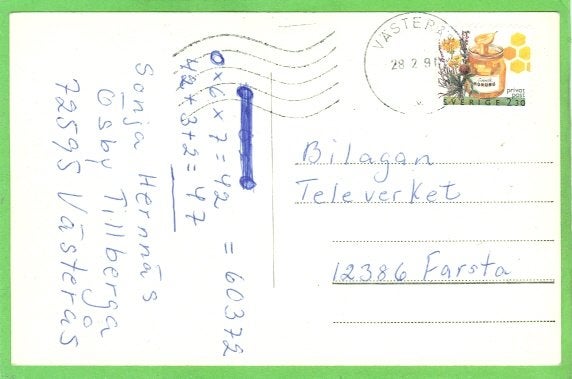 VÄSTERÅS
28 2 91
HONUNG
privat
post
SVERIGE 2.30
0x6x7=42 = 60372
42+3+2=47
Sonja Hernnäs
Ösby Tillberga
72595 Västerås
Bilagan
Televerket
12386 Farsta